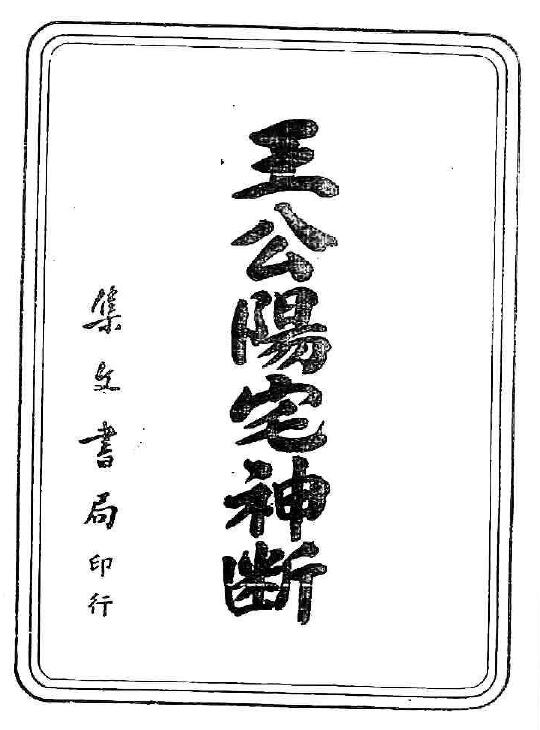 王公陽宅神斷
集文書局印行